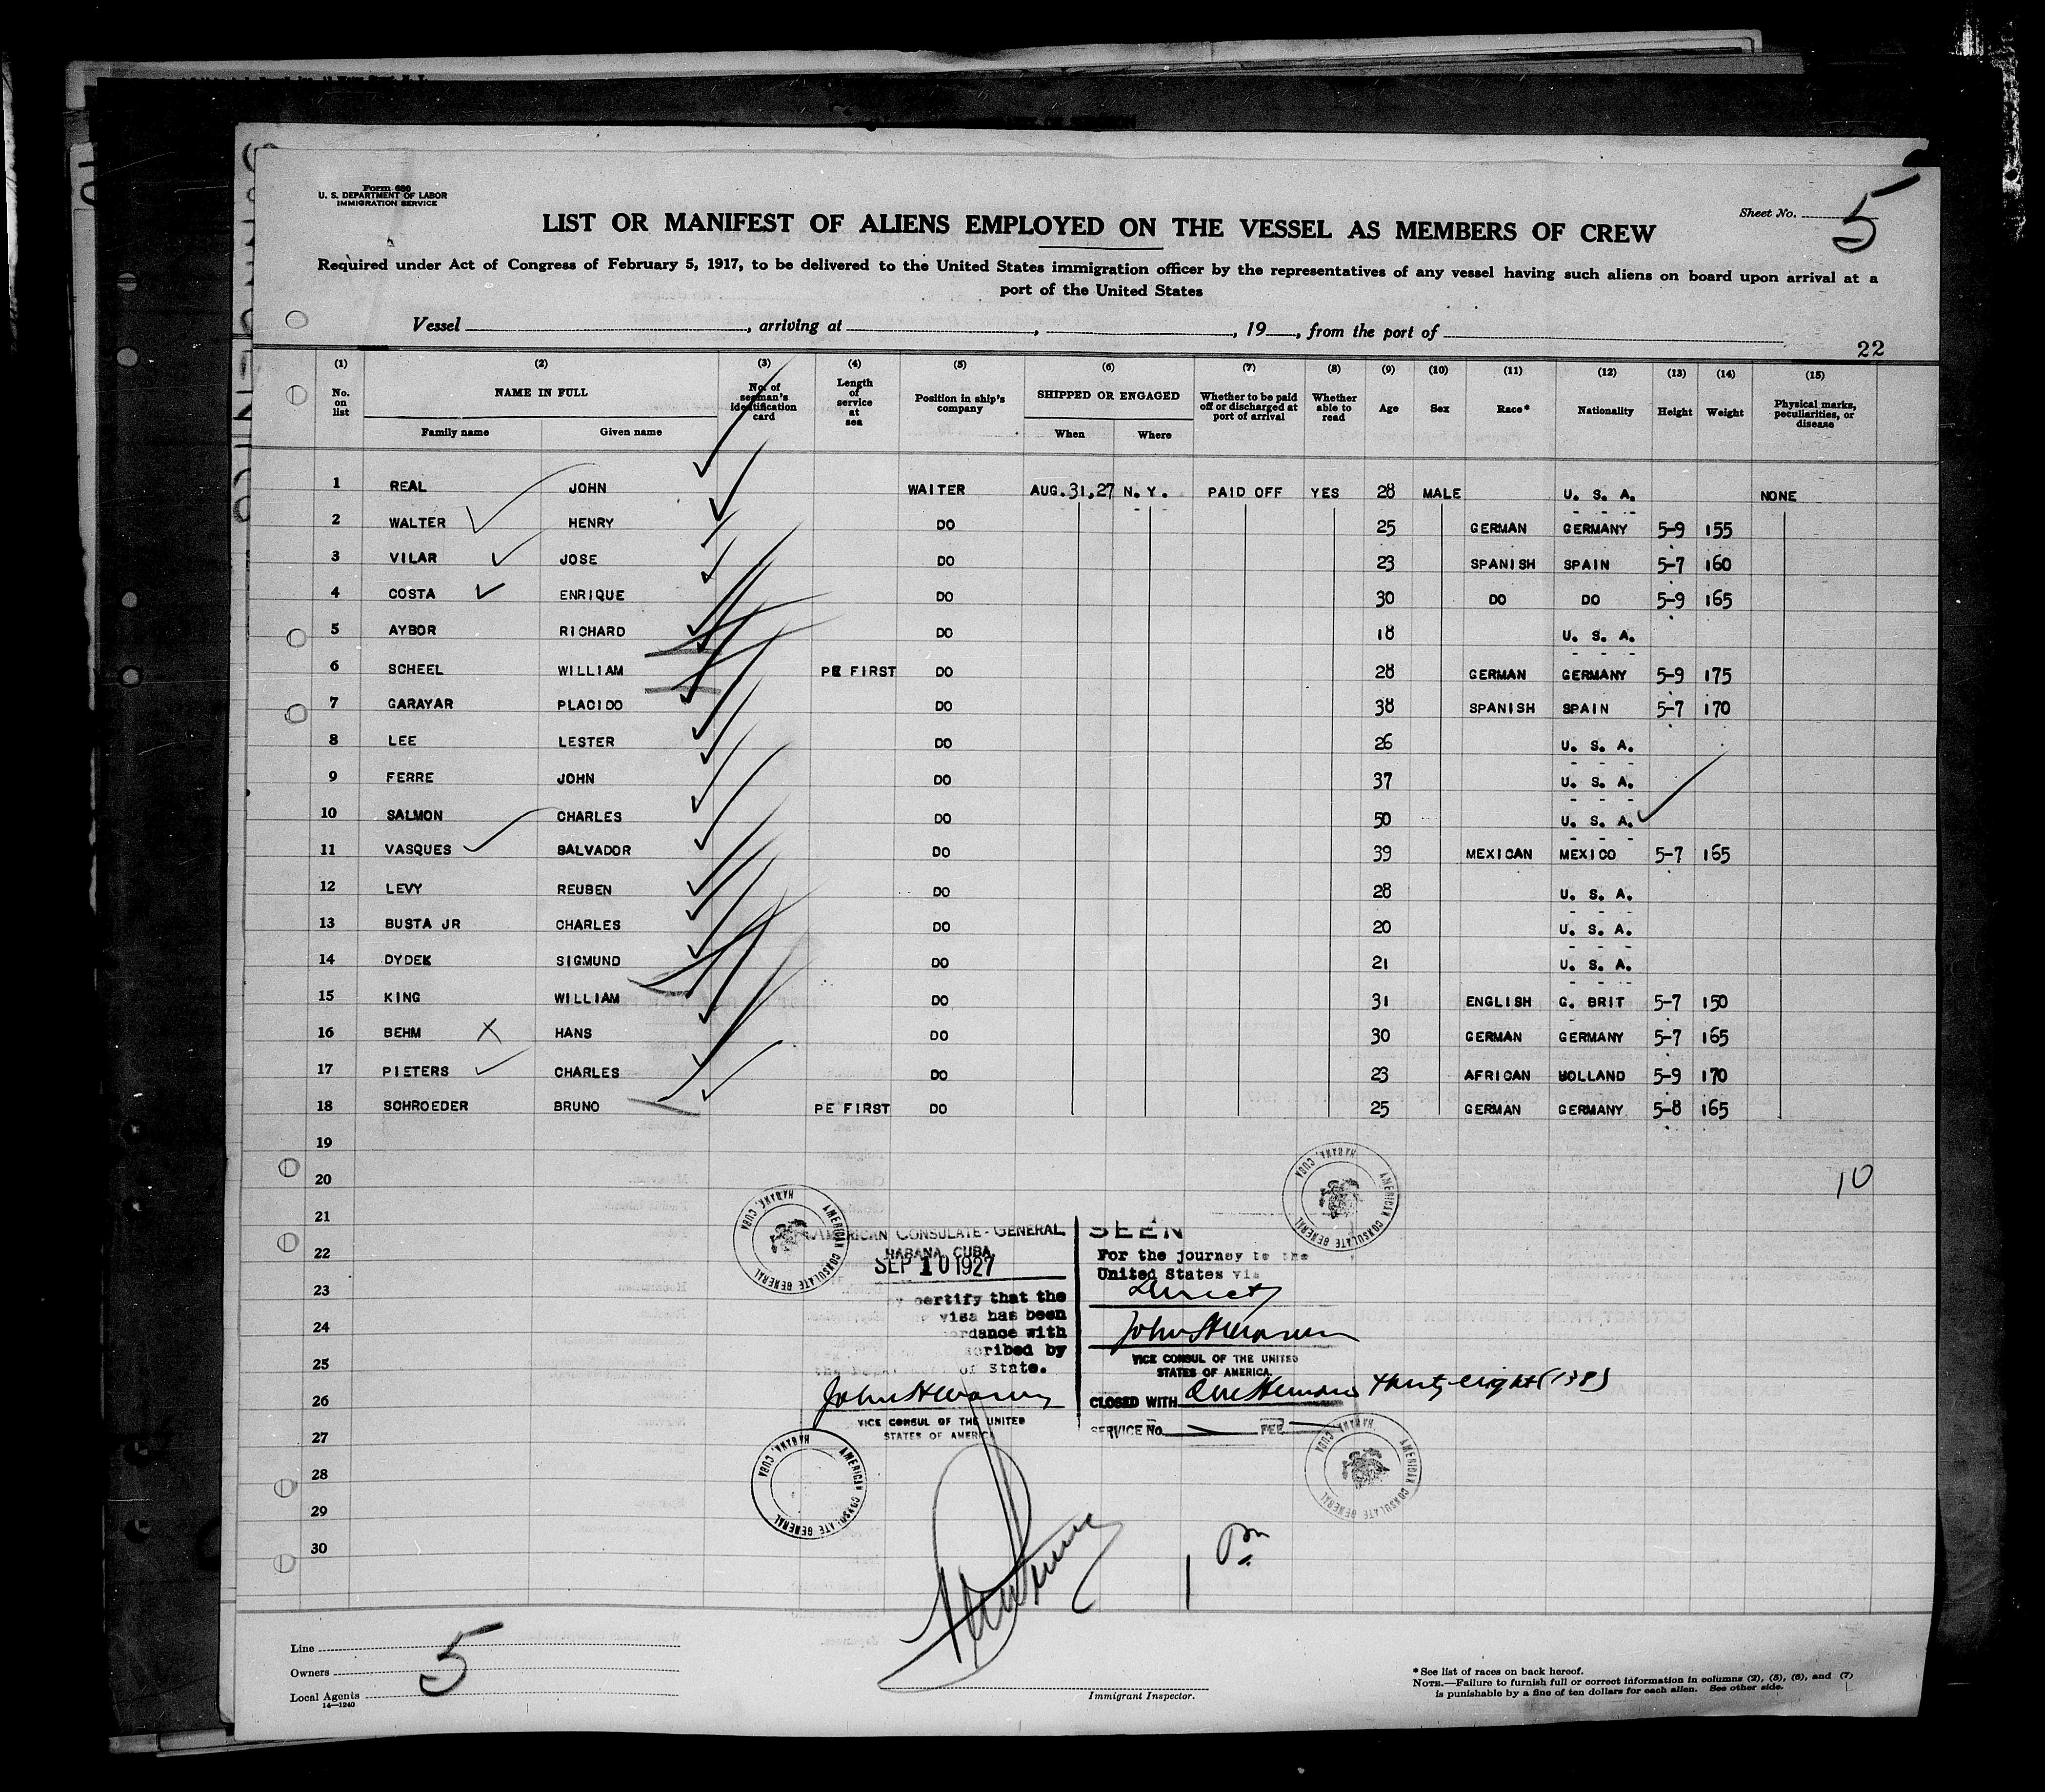 Form 680
U. S. DEPARTMENT OF LABOR
IMMIGRATION SERVICE
Sheet No. 5
LIST OR MANIFEST OF ALIENS EMPLOYED ON THE VESSEL AS MEMBERS OF CREW
Required under Act of Congress of February 5, 1917, to be delivered to the United States immigration officer by the representatives of any vessel having such aliens on board upon arrival at a
port of the United States
Vessel , arriving at , , 19 , from the port of
22
(1) (2) (3) (4) (5) (6) (7) (8) (9) (10) (11) (12) (13) (14) (15)
No. on list NAME IN FULL No. of seaman's identification card Length of service at sea Position in ship's company SHIPPED OR ENGAGED Whether to be paid off or discharged at port of arrival Whether able to read Age Sex Race* Nationality Height Weight Physical marks, peculiarities, or disease
Family name Given name When Where
1 REAL JOHN WAITER AUG.31,27 N.Y. PAID OFF YES 28 MALE U. S. A. NONE
2 WALTER HENRY DO 25 GERMAN GERMANY 5-9 155
3 VILAR JOSE DO 23 SPANISH SPAIN 5-7 160
4 COSTA ENRIQUE DO 30 DO DO 5-9 165
5 AYBOR RICHARD DO 18 U. S. A.
6 SCHEEL WILLIAM PE FIRST DO 28 GERMAN GERMANY 5-9 175
7 GARAYAR PLACIDO DO 38 SPANISH SPAIN 5-7 170
8 LEE LESTER DO 26 U. S. A.
9 FERRE JOHN DO 37 U. S. A.
10 SALMON CHARLES DO 50 U. S. A.
11 VASQUES SALVADOR DO 39 MEXICAN MEXICO 5-7 165
12 LEVY REUBEN DO 28 U. S. A.
13 BUSTA JR CHARLES DO 20 U. S. A.
14 DYDEK SIGMUND DO 21 U. S. A.
15 KING WILLIAM DO 31 ENGLISH G. BRIT 5-7 150
16 BEHM X HANS DO 30 GERMAN GERMANY 5-7 165
17 PIETERS CHARLES DO 23 AFRICAN HOLLAND 5-9 170
18 SCHROEDER BRUNO PE FIRST DO 25 GERMAN GERMANY 5-8 165
19
20 10
21
22
23
24
25
26
27
28
29
30
AMERICAN CONSULATE GENERAL HABANA, CUBA
AMERICAN CONSULATE GENERAL HABANA, CUBA
AMERICAN CONSULATE-GENERAL
HABANA, CUBA.
SEP 10 1927
certify that the
visa has been
with
by
of State.
VICE CONSUL OF THE UNITED
STATES OF AMERICA
SEEN
For the journey to the
United States via
Direct
VICE CONSUL OF THE UNITED
STATES OF AMERICA.
CLOSED WITH One Hundred thirty eight (138)
SERVICE No. FEE
AMERICAN CONSULATE GENERAL HABANA, CUBA
AMERICAN CONSULATE GENERAL HABANA, CUBA
1
Line
Owners
Local Agents
14—1240
5
Immigrant Inspector.
*See list of races on back hereof.
NOTE.—Failure to furnish full or correct information in columns (2), (5), (6), and (7)
is punishable by a fine of ten dollars for each alien. See other side.